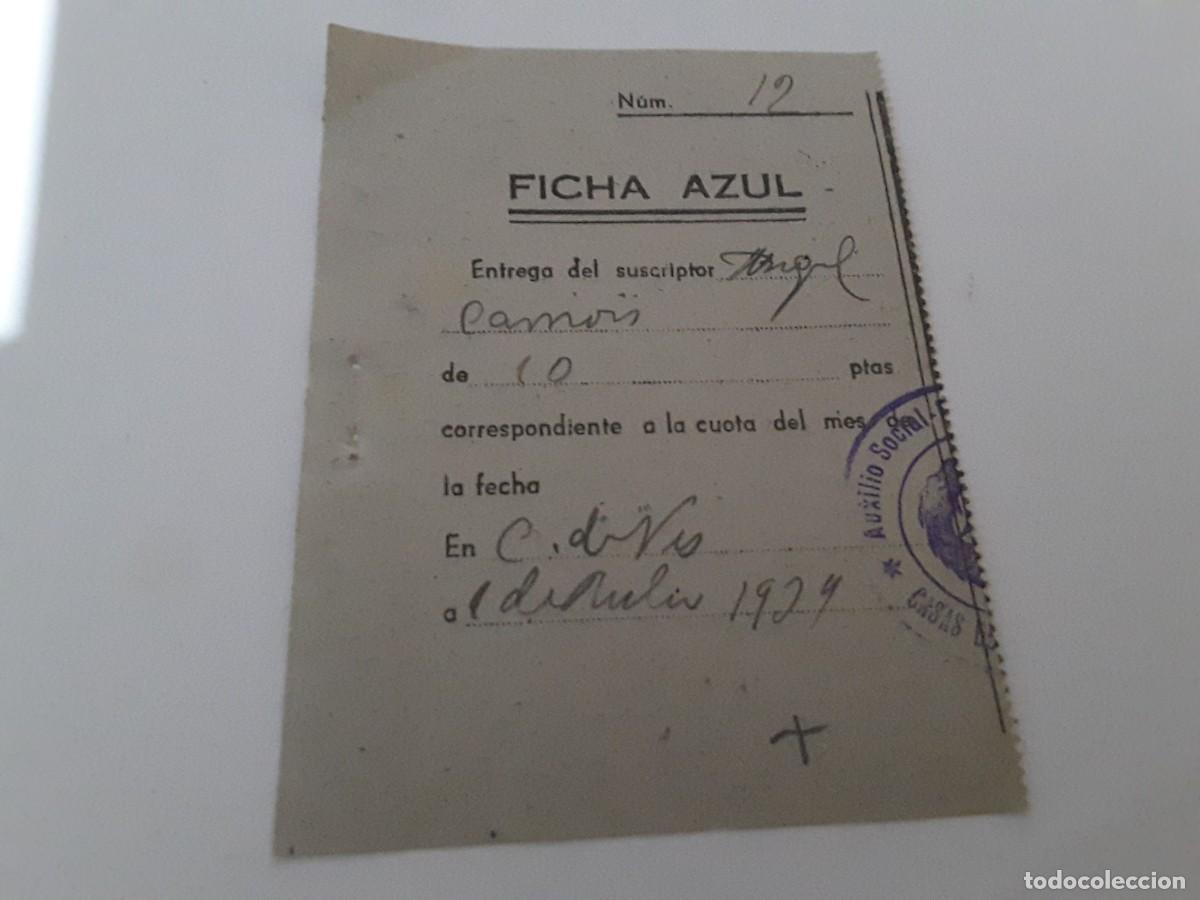 Núm. 12
FICHA AZUL
Entrega del suscriptor Angel
de 10 ptas
correspondiente a la cuota del mes de
la fecha
En C. de Ves
a 1 de Julio 1939
Auxilio Social
* CASAS
+
todocoleccion